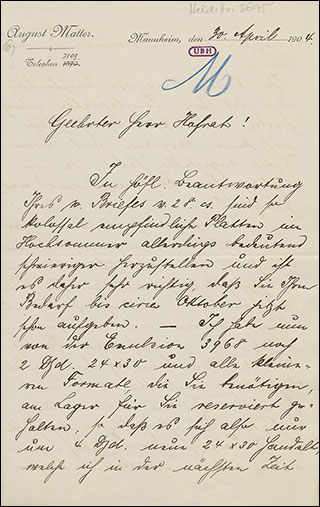 August Matter.
Telephon 1892.
3109
Mannheim, den 30. April 1904.
UBH
M
Geehrter Herr Hofrat!
In höfl. Beantwortung
Ihres w. Briefes v. 28. cs. sind so
kolossal empfindliche Platten im
Hochsommer allerdings bedeutend
schwieriger herzustellen und ist
es daher sehr richtig, daß Sie Ihren
Bedarf bis circa Oktober jetzt
schon aufgeben. — Ich habe nun
von der Emulsion 3968 noch
2 Dzd. 24 x 30 und alle kleine-
ren Formate, die Sie benötigen,
am Lager für Sie reserviert ge-
halten, so daß es sich also nur
um 4 Dzd. neue 24 x 30 handelt,
welche ich in der nächsten Zeit